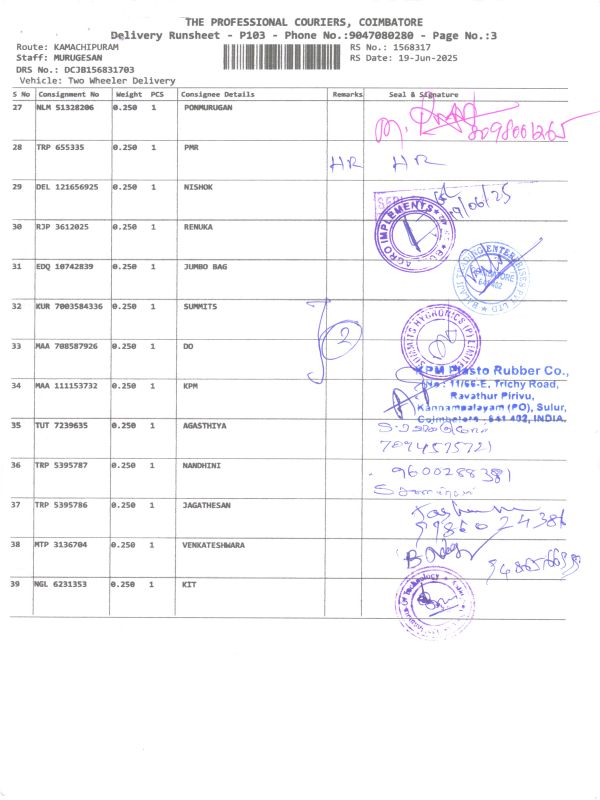 THE PROFESSIONAL COURIERS, COIMBATORE
Delivery Runsheet - P103 - Phone No.:9047080280 - Page No.:3
Route: KAMACHIPURAM RS No.: 1568317
Staff: MURUGESAN RS Date: 19-Jun-2025
DRS No.: DCJB156831703
Vehicle: Two Wheeler Delivery
S No Consignment No Weight PCS Consignee Details Remarks Seal & Signature
27 NLM 51328206 0.250 1 PONMURUGAN
28 TRP 655335 0.250 1 PMR HR HR
29 DEL 121656925 0.250 1 NISHOK 19/06/25
AGRO IMPLEMENTS
30 RJP 3612025 0.250 1 RENUKA
31 EDQ 10742839 0.250 1 JUMBO BAG
32 KUR 7003584336 0.250 1 SUMMITS
SUMMITS HYGRONICS (P) LIMITED
33 MAA 708587926 0.250 1 DO 2
34 MAA 111153732 0.250 1 KPM
KPM Plasto Rubber Co.,
No : 11/66-E, Trichy Road,
Ravathur Pirivu,
Kannampalayam (PO), Sulur,
Coimbatore - 641 402, INDIA.
35 TUT 7239635 0.250 1 AGASTHIYA
7094575721
36 TRP 5395787 0.250 1 NANDHINI
9600288381
37 TRP 5395786 0.250 1 JAGATHESAN
38 MTP 3136704 0.250 1 VENKATESHWARA
39 NGL 6231353 0.250 1 KIT